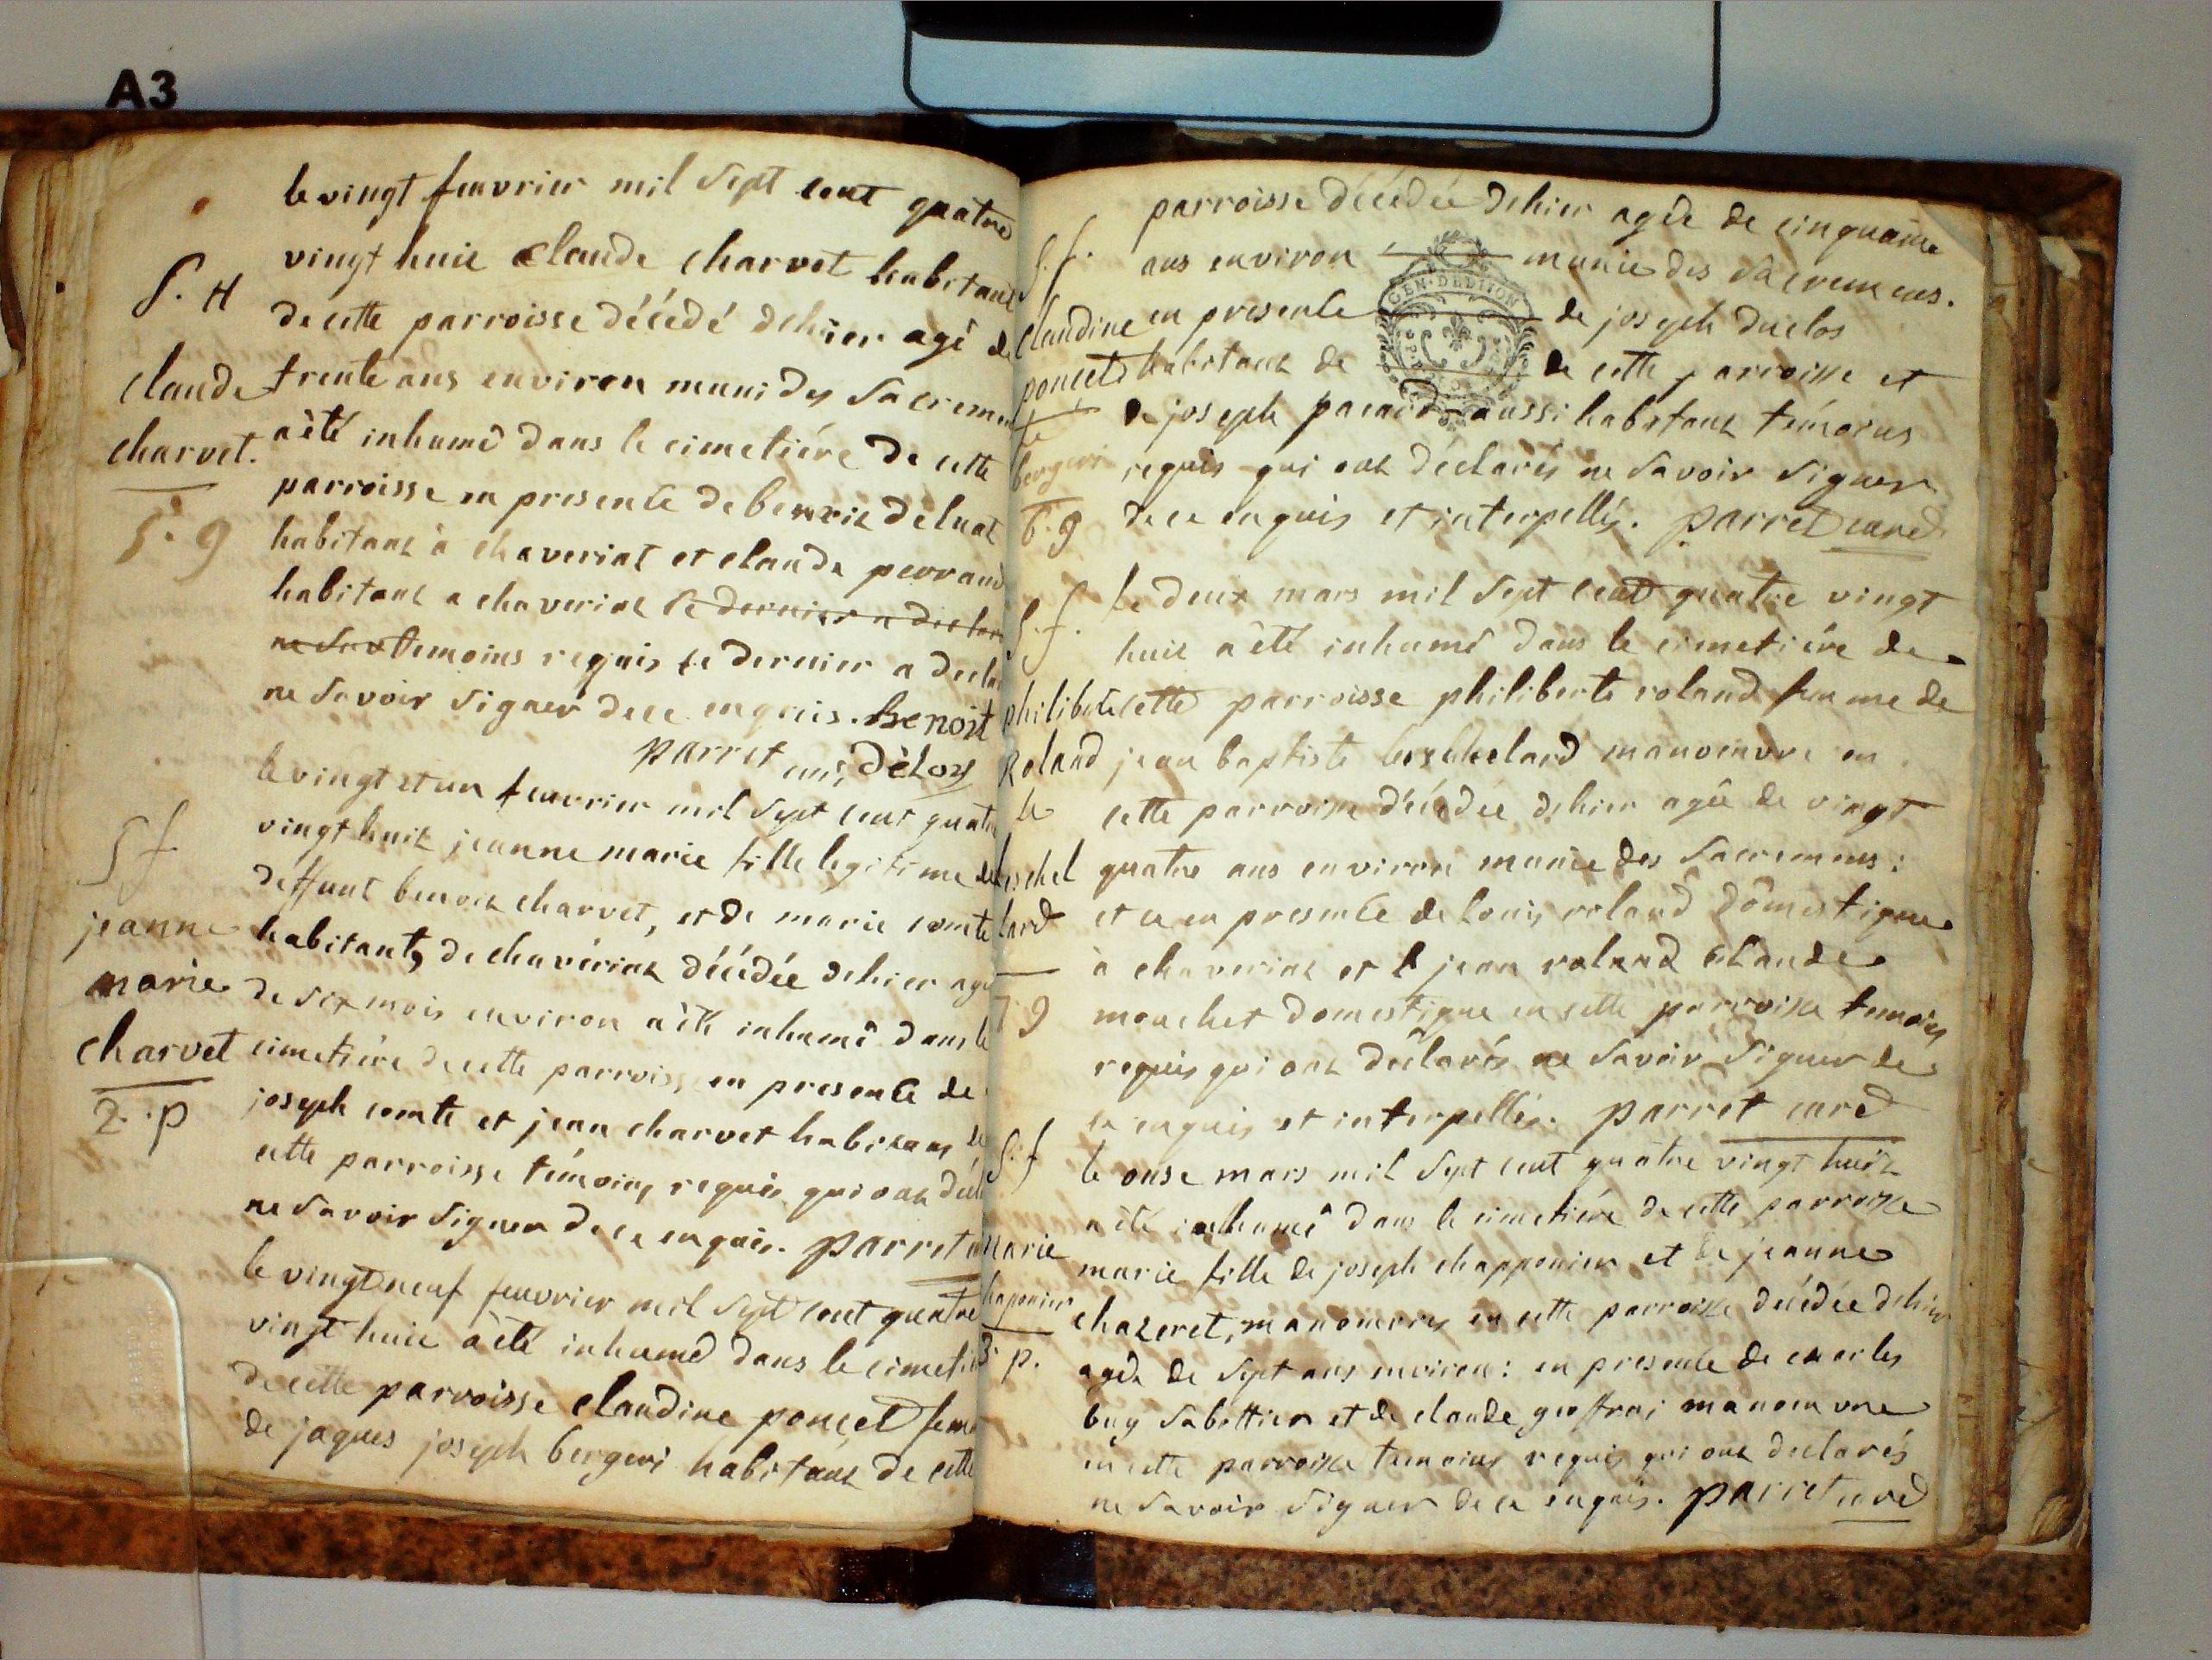 A3
le vingt feuvrier mil sept cent quatre
vingt huit claude charvet habitant
de cette parroisse décédé dehier agé de
trente ans environ muni des sacremen
a été inhumé dans le cimetiére de cette
parroisse en presence de benoit
habitant à chaveriat et claude perraud
habitant a chaveriat le dernier a declar
ne sav temoins requis le dernier a decla
ne savoir signer de ce enquis. Benoit
parret curé
S. H
claude
charvet.
5. 9
le vingt et un feuvrier mil sept cent quatre
vingt huit jeanne marie fille legitime de
deffunt benoit charvet, et de marie comte
habitants de chavériat décédée dehier agé
de six mois environ a été inhumé dans le
cimetiére de cette parroisse en presence de
joseph comte et jean charvet habitans de
cette parroisse témoins requis qui ont décl
ne savoir signer de ce enquis. parret
S f
jeanne
marie
charvet
2. p
le vingt neuf feuvrier mil sept cent quatre
vingt huit a été inhumé dans le cimetie
de cette parroisse claudine poncet fem
de jaques joseph bergeri habitant de cette
parroisse décédée dehier agée de cinquante
ans environ munie des sacremens.
en presence de joseph duclos
habitant de de cette parroisse et
de joseph pacard aussi habitant témoins
requis qui ont déclarés ne savoir signer
de ce enquis et interpellés. parret curé
S. f.
claudine
poncet
fe
bergeri
6. 9
GEN. DE DIJON
le deux mars mil sept cent quatre vingt
huit a été inhumé dans le cimetiére de
cette parroisse philiberte roland femme de
jean baptiste manoeuvre en
cette parroisse décédée dehier agée de vingt
quatre ans environ munie des sacremens:
et ce en presence de louis roland domestique
à chaveriat et jean roland claude
mouchet domestique en cette parroisse temoins
requis qui ont déclarés ne savoir signer de
ce enquis et interpellés. parret curé
S. f.
philiberte
Roland
fe
eschel
lard
7 9
le onse mars mil sept cent quatre vingt huit
a été inhumé dans le cimetiére de cette parroisse
marie fille de joseph chapponier et de jeanne
chazeret, manoeuvres en cette parroisse décédée dehier
agée de sept ans environ: en presence de charles
buy sabottier et de claude geoffrai manoeuvre
en cette parroisse temoins requis qui ont declarés
ne savoir signer de ce enquis. parret curé
S. f
marie
haponier
3. p.